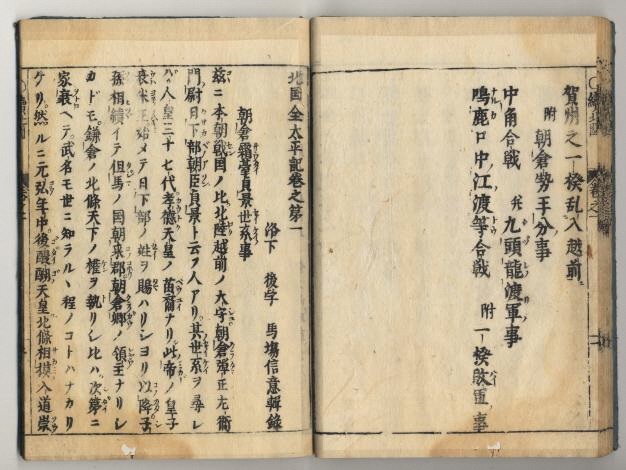 賀州之一揆乱入越前
附 朝倉勢手分事
中角合戦 并 九頭龍渡軍事
鳴鹿口中江渡等合戦 附 一揆敗軍事
北国全太平記巻之第一
洛下 後学 馬場信意輯録
朝倉霜臺貞景世系事
茲ニ本朝戦国ノ比北陸越前ノ大守朝倉弾正左衛
門尉日下部朝臣貞景ト云フ人アリ其世系ヲ尋レ
バ人皇三十七代孝徳天皇ノ苗裔ナリ此帝ノ皇子
表米王始メテ日下部ノ姓ヲ賜ハリシヨリ以降子
孫相續イテ但馬ノ国朝来郡朝倉郷ノ領主ナリシ
カドモ鎌倉ノ北條天下ノ權ヲ執リシ比ハ次第ニ
家衰ヘテ武名モ世ニ知ラルヽ程ノコトハナカリ
ケリ然ルニ元弘年中後醍醐天皇北條相模入道崇